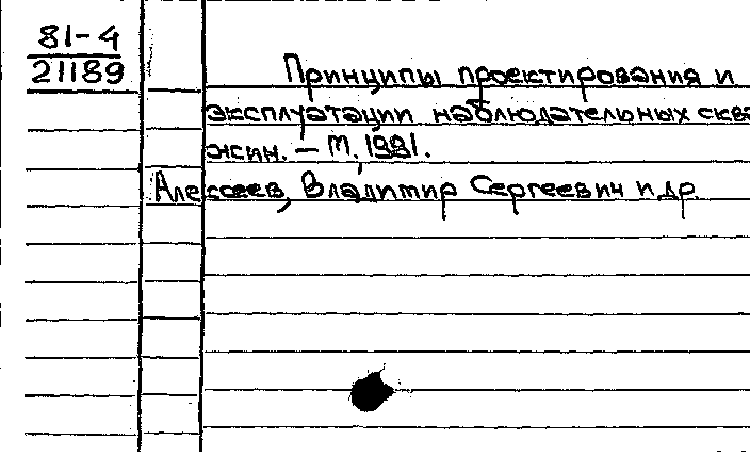 81-4
21189
Принципы проектирования и
эксплуатации наблюдательных сква
жин. – М, 1981.
Алексеев, Владимир Сергеевич и др.